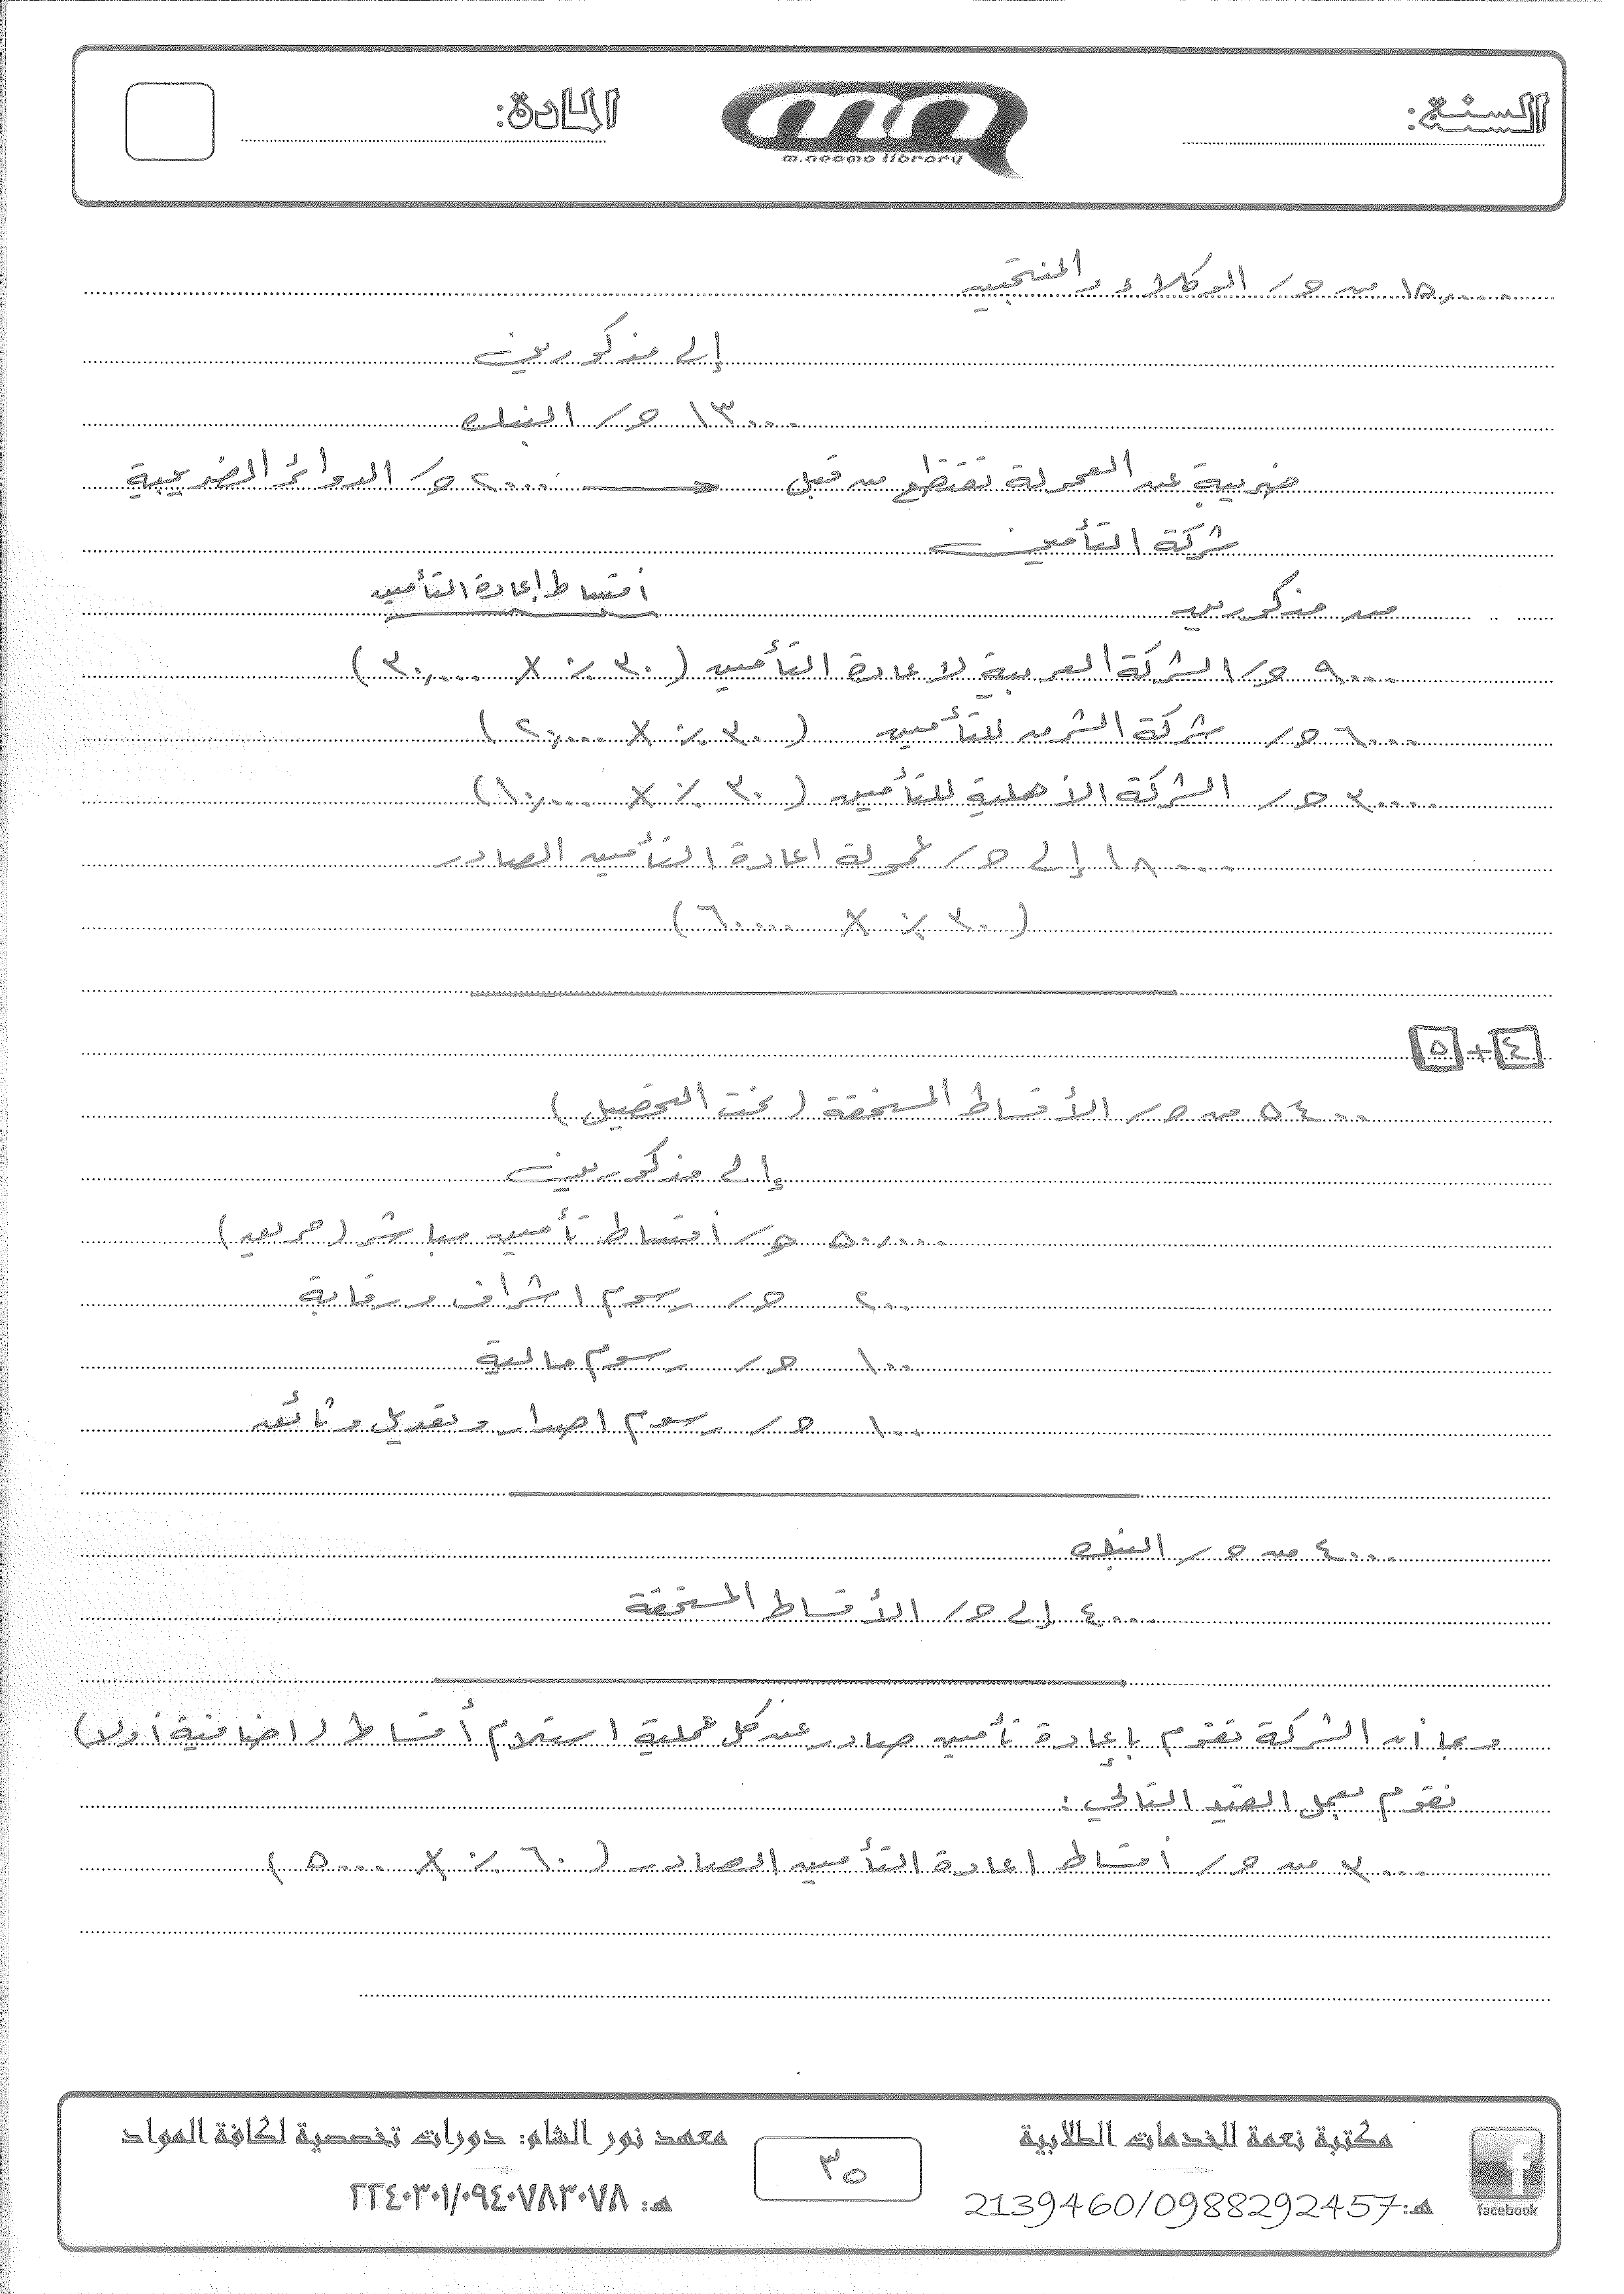 السنة:
المادة:
m.neomo library
١٥,٠٠٠ من ح/ الوكلاء والمنتجين
إلى مذكورين
١٣٠٠٠ ح/ البنك
ضريبة عن العمولة تقتطع من قبل ٢٠٠٠ ح/ الدوائر الضريبية
شركة التأمين
من مذكورين أقساط إعادة التأمين
٩٠٠٠ ح/ الشركة العربية لاعادة التأمين (٣٠ ٪ X ٣٠,٠٠٠)
٦٠٠٠ ح/ شركة الشرق للتأمين (٣٠ ٪ X ٢٠,٠٠٠)
٣٠٠٠ ح/ الشركة الأهلية للتأمين (٣٠ ٪ X ١٠,٠٠٠)
١٨٠٠٠ إلى ح/ عمولة اعادة التأمين الصادر
(٣٠ ٪ X ٦٠٠٠٠)
٤ + ٥
٥٤٠٠ من ح/ الأقساط المستحقة (تحت التحصيل)
إلى مذكورين
٥٠,٠٠٠ ح/ أقساط تأمين مباشر (حريق)
٢٠٠ ح/ رسوم اشراف ورقابة
١٠٠ ح/ رسوم مالية
١٠٠ ح/ رسوم اصدار وتعديل وثائق
٤٠٠٠ من ح/ البنك
٤٠٠٠ إلى ح/ الأقساط المستحقة
وبما أن الشركة تقوم بإعادة تأمين صادر عند كل عملية استلام أقساط (اضافية أولا)
نقوم بعمل القيد التالي:
٣٠٠٠ من ح/ أقساط اعادة التأمين الصادر (٦٠ ٪ X ٥٠٠٠)
مكتبة نعمة للخدمات الطلابية
هـ: 2139460/0988292457
facebook
٣٥
معهد نور الشام: دورات تخصصية لكافة المواد
هـ: ٢٢٤٠٣٠١/٠٩٤٠٧٨٣٠٧٨